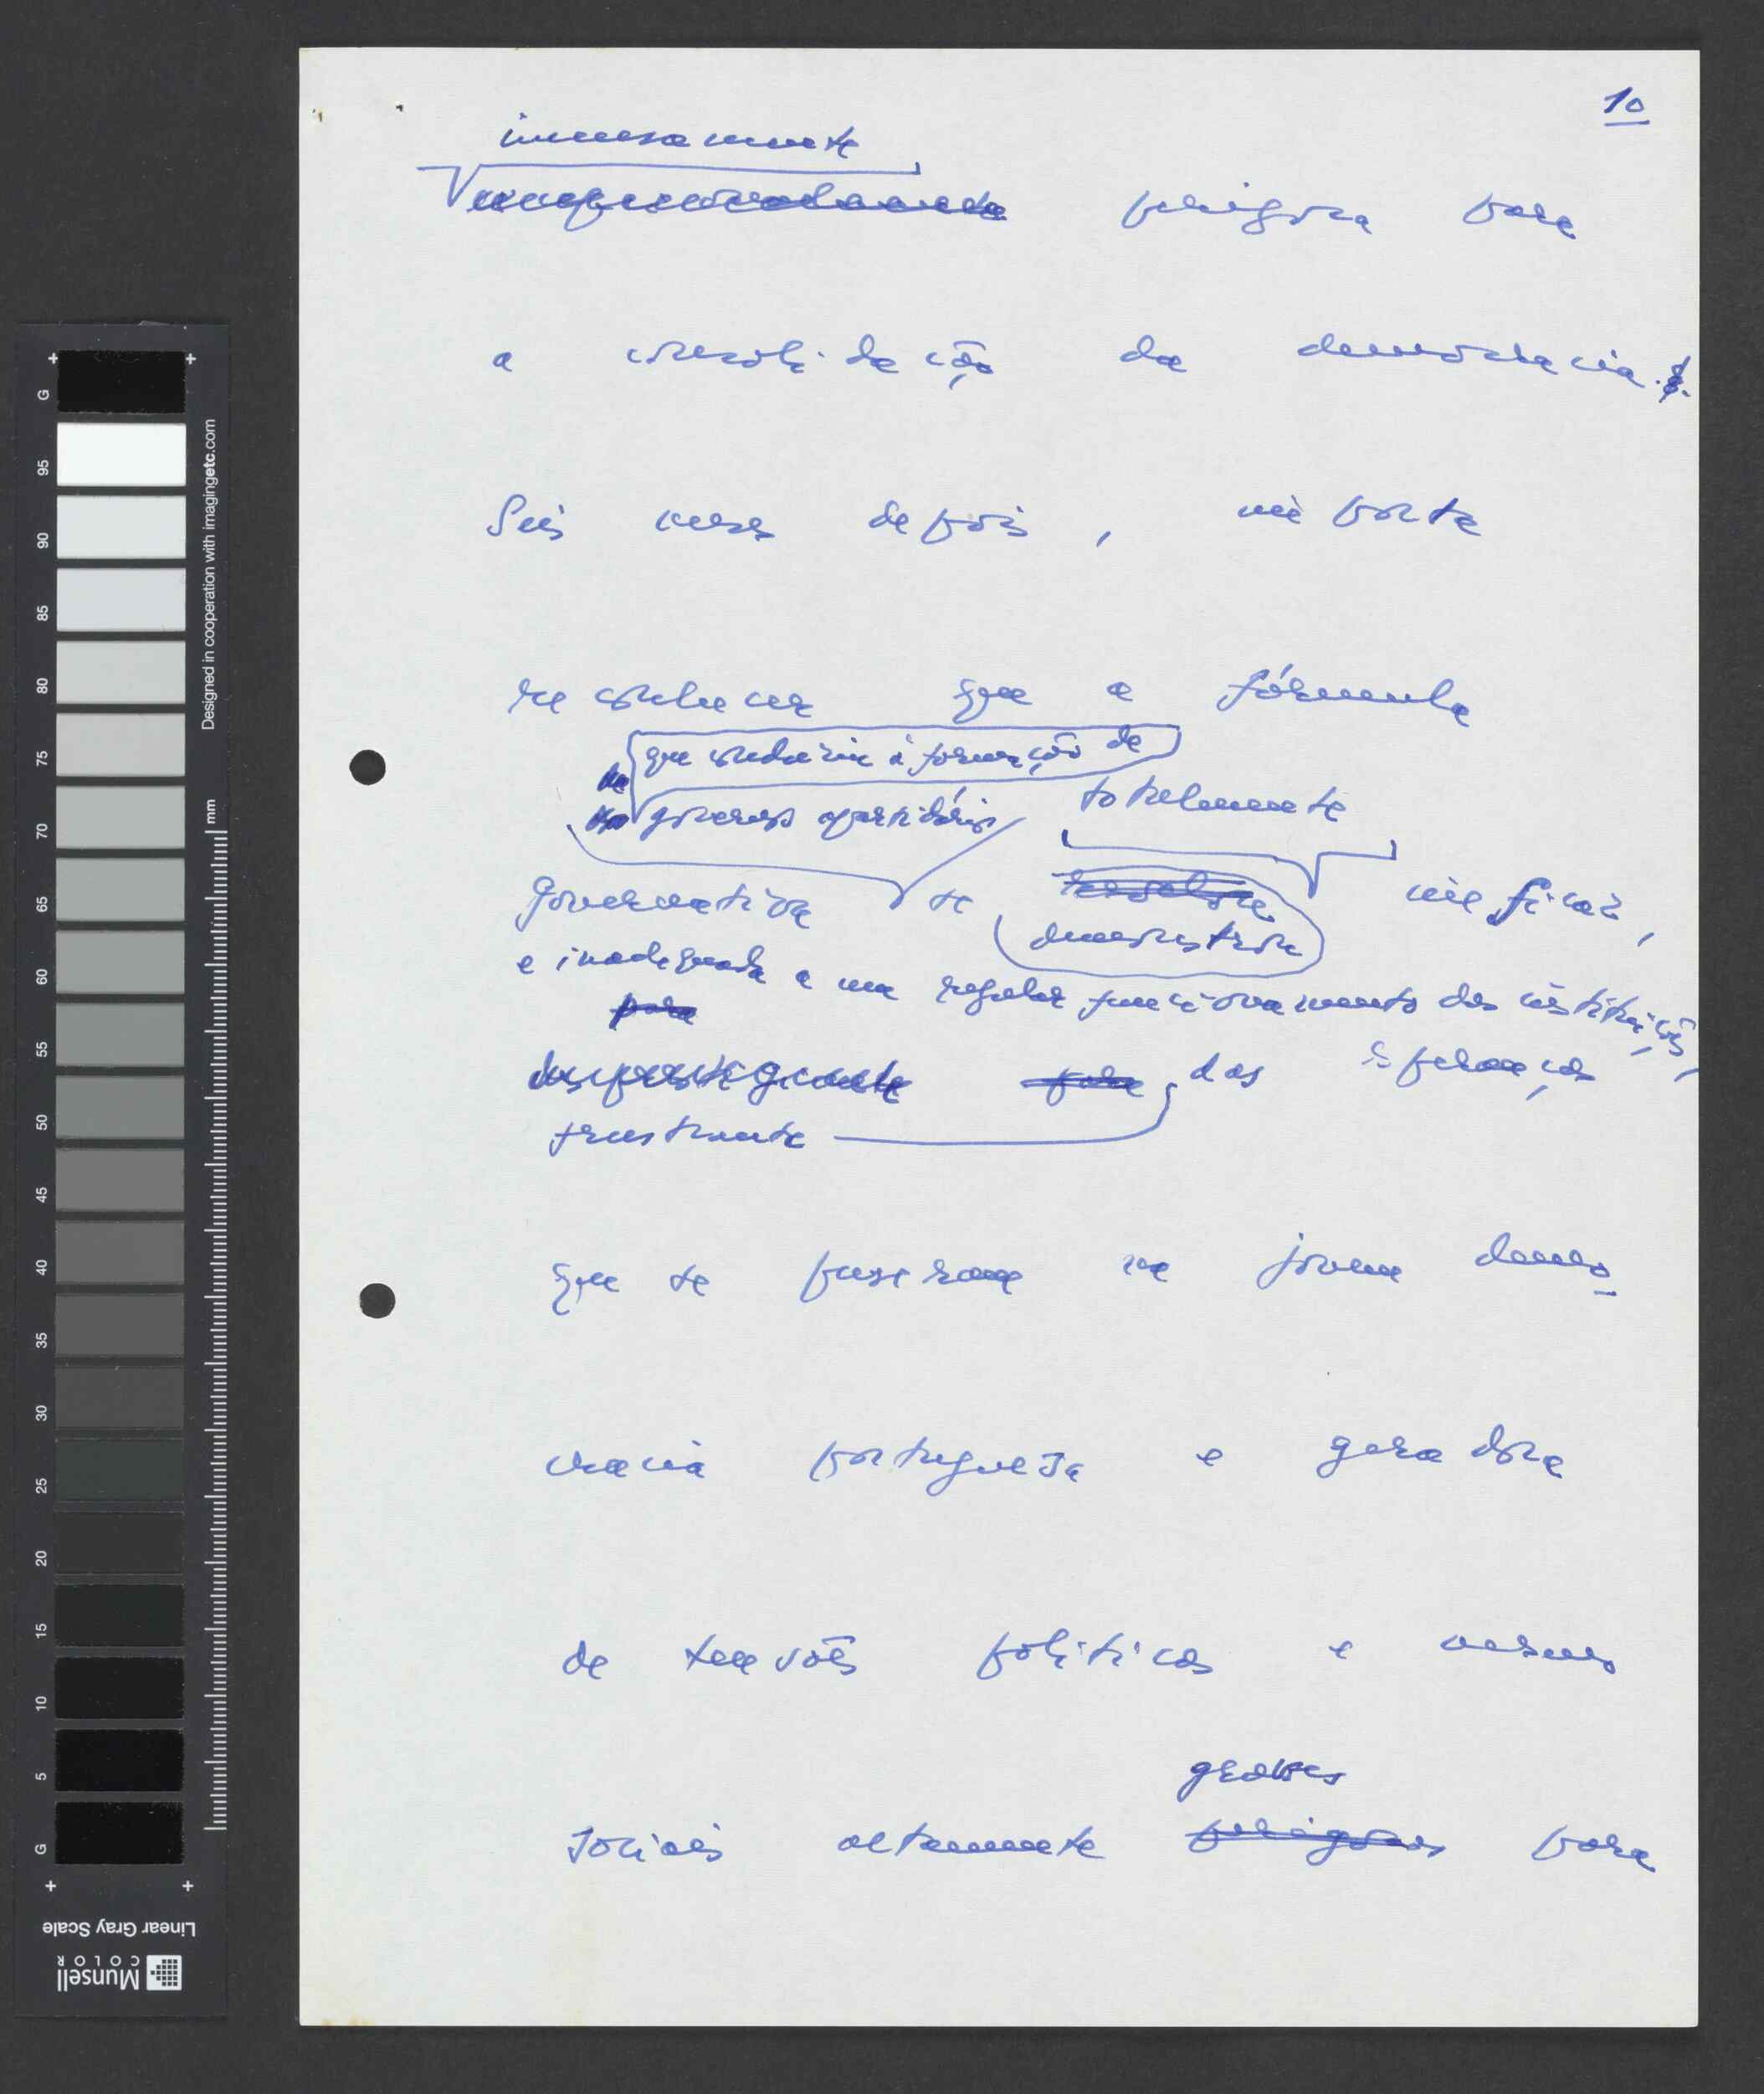 10
imensamente
perigosa para
a consolidação da democracia.
Seis meses depois, importa
reconhecer que a fórmula
que conduziu à formação de
governos apartidários totalmente
governativa se revelou ineficaz,
demonstrou
e inadequada a um regular funcionamento das instituições,
para
desprestigiante para das esperanças
frustrante
que se puseram na jovem demo
cracia portuguesa e geradora
de tensões políticas e mesmo
graves
sociais altamente perigosas para
G 95 90 85 80 75 70 65 60 55 50 45 40 35 30 25 20 15 10 5 G
mm
Designed in cooperation with imagingetc.com
Linear Gray Scale
Munsell
COLOR